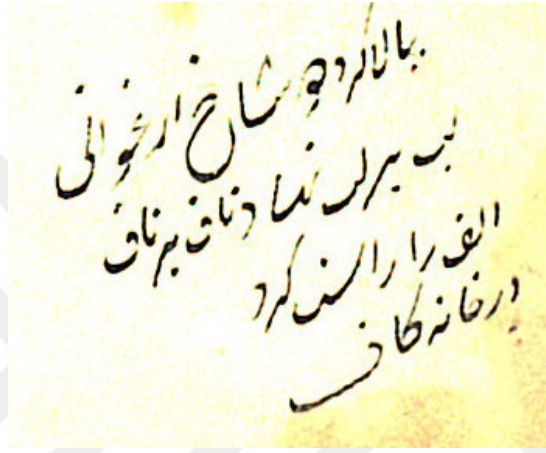 ببالا کرده شاخ ارغوانی
لب بر لب نهاد و ناف بر ناف
الف را راست کرد
در خانه کاف